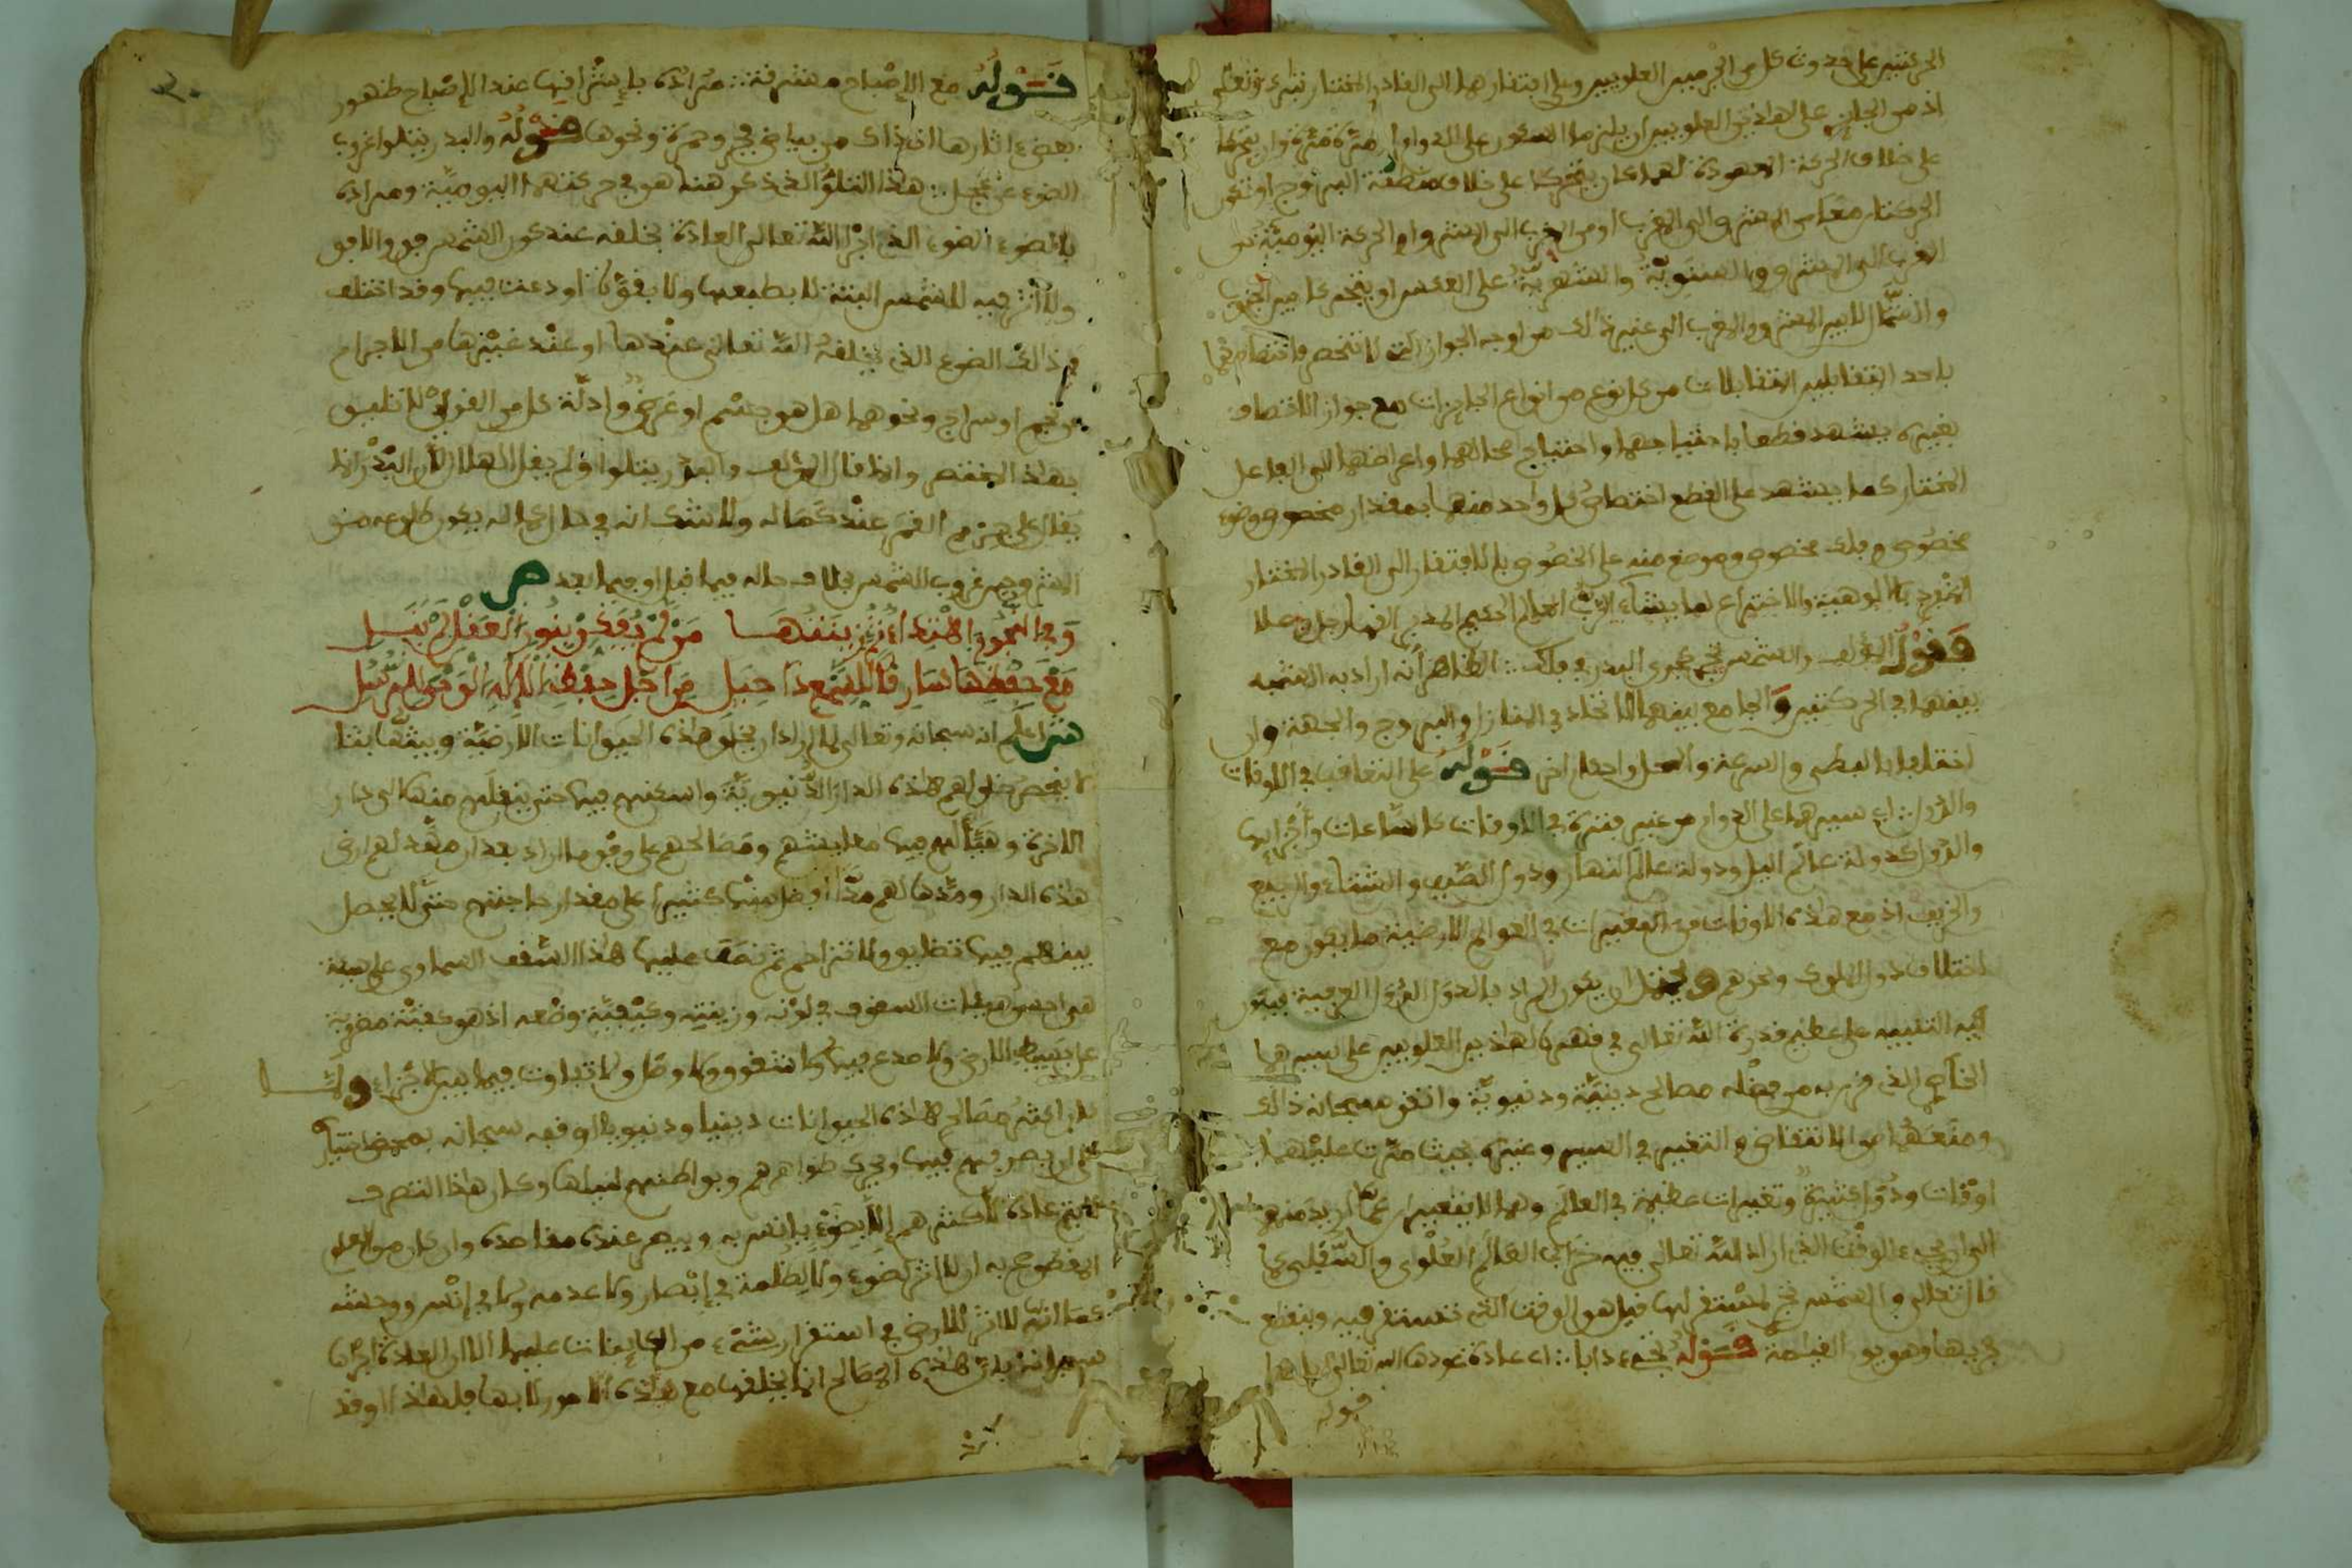 الحركتين على حدوث كل من الجرمين العلويين وعلى افتقارهما الى القادر المختار تبارك وتعالى
اذ من الجائز على هاذين العلويين ان يلزما السكون على الدوام او مرة مرة وان يتحركا
على خلاف الحركة المعهودة لهما كان يتحركا على خلاف منطقة البروج او تكون
الحركتان معا من المشرق الى المغرب او من المغرب الى المشرق او الحركة اليومية من
المغرب الى المشرق والسنوية والشهرية على العكس او يتحركا بين الجنوب
والشمال لا بين المشرق والمغرب الى غير ذالك من اوجه الجواز التي لا تنحصر فاختصاصهما
باحد المتقابلين المتقابلات من كل نوع من انواع الجايزات مع جواز الاتصاف
بغيره يشهد قطعا باحتياجهما واحتياج محالهما واعراضهما الى الفاعل
المختار كما يشهد على القطع اختصاص كل واحد منهما بمقدار مخصوص وضوء
مخصوص وفلك مخصوص وموضع منه على الخصوص بالافتقار الى القادر المختار
المنفرد بالالوهية والاختراع لما يشاء الرب العالم الحكيم المدبر القهار جل وعلا
قول المؤلف والشمس تجري مجرى البدر في فلك الظاهر انه اراد به التشبيه
بينهما في الحركتين والجامع بينهما الاتحاد في المنازل والبروج والجهة وان
اختلفا بالبطئ والسرعة والمحل واحد قوله على التعاقب في الاوقات
والدول اي سيرهما على الدوام من غير فترة في الاوقات كالساعات واجزايها
والدول كدولة عالم الليل ودولة عالم النهار ودول الصيف والشتاء والربيع
والخريف اذ مع هاذه الاوقات من التغيرات في العوالم الارضية ما يكون مع
اختلاف دول الملوك ونحوهم ويحتمل ان يكون المراد بالدول الدول العرفية فيكون
فيه التنبيه على عظيم قدرة الله تعالى في قهره لهاذين العلويين على سيرهما
الخاص الذي قرر به من فضله مصالح دينية ودنيوية واتقن سبحانه ذالك
ومنعهما من الانتقاض والتغير في السير وغيره بحيث مرت عليهما
اوقات ودول كثيرة وتغيرات عظيمة في العالم وهما لا يتغيران عما اريد منهما
الى ان يجيء الوقت الذي اراد الله تعالى فيه خراب العالم العلوي والسفلي كما
قال تعالى والشمس تجري لمستقر لها قيل هو الوقت الذي تستقر فيه وينقطع
جريها وهو يوم القيامة قوله تجري دابا اي عادة عودها الله تعالى اياها
قوله
قوله مع الاصباح مشرقة مراده باشراقها عند الاصباح ظهور
بعض اثارها اذ ذاك من بياض فجر وحمرة ونحوها قوله والبدر يتلوا غروب
الضوء عن عجل هذا التلو الذي ذكر هنا هو في حركتهما اليومية ومراده
بالضوء الضوء الذي اجرا الله تعالى العادة بخلقه عند كون الشمس فوق الافق
ولا اثر فيه للشمس البتة لا بطبعها ولا بقوة اودعت فيها وقد اختلف
في ذالك الضوء الذي يخلقه الله تعالى عندها او عند غيرها من الاجرام
كنجم او سراج ونحوهما هل هو جسم او عرض وادلة كل من القولين لا تليق
بهاذا المختصر وانما قال المؤلف والبدر يتلوا ولم يقل الهلال لان البدر انما
يقال على جرم القمر عند كماله ولا شك انه في حال كماله يكون طلوعه من
المشرق حين غروب الشمس بخلاف حاله فيما قبل او فيما بعد ص
وفي النجوم اهتداء وزينتها من لم يفكر بنور العقل لم ينل
مع حفظها سارقا للسمع ذا حيل من اجل حفظ الاله الوحي للرسل
ش اعلم انه سبحانه وتعالى لما اراد ان يخلق هذه الحيوانات الارضية وبثها بثا
لا ينحصر خلق لهم هاذه الدار الدنيوية واسكنهم فيها حتى ينقلهم منها الى دار
الاخرة وهيا لهم فيها معايشهم ومصالحهم على وفق ما اراد بعد ان مهد لهم ارض
هاذه الدار ومدها لهم مدا افضل منها كثيرا على مقدار حاجتهم حتى لا يحصل
بينهم فيها تضايق ولا تزاحم ثم سقف عليها هذا السقف السماوي على هيئة
هي احسن هيئات السقوف في لونه وزينته وكيفية وضعه اذ هو كقبة مضروبة
على بسيط الارض ولا صدع فيها ولا شقوق ولا وصل ولا تفاوت فيما بين الاجزاء ولما
كان اكثر مصالح هاذه الحيوانات دينيا ودنيويا اوقفه سبحانه بمحض اختياره
على ان يصرفهم فيها ويحرك ظواهرهم وبواطنهم لنيلها وكان هذا التصرف
لا يتم عادة لاكثرهم الا بضوء يانس به ويبصر عنده مقاصده وان كان من المعلوم
المقطوع به ان لا اثر لضوء ولا لظلمة في ابصار ولا عدمه ولا في انس ووحشة
كما انه لا اثر للارض في استقرار شيء من الكاينات عليها الا ان العادة اجراها
سبحانه بان هاذه المصالح انما يخلقها مع هاذه الامور لا بها فلهاذا اوقد